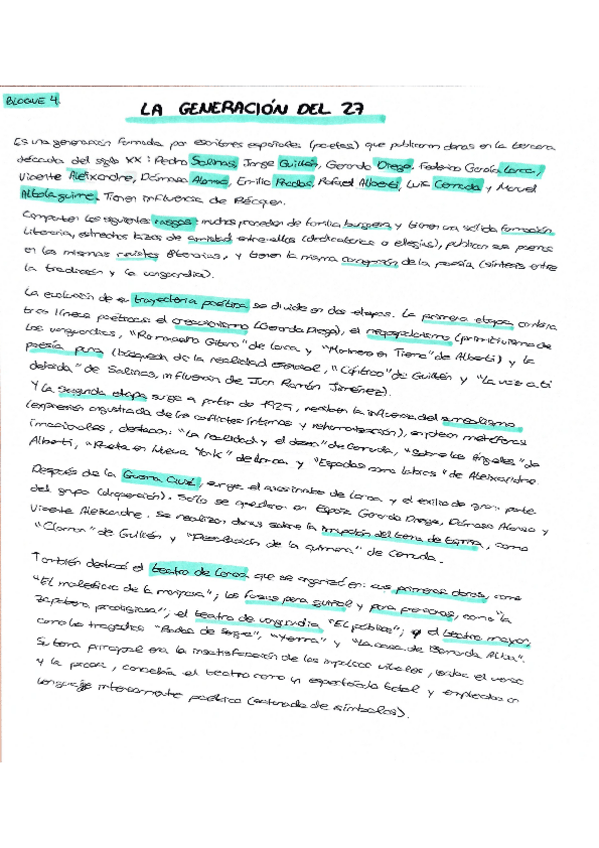 BLOQUE 4.
LA GENERACIÓN DEL 27
Es una generación formada por escritores españoles (poetas) que publicaron obras en la tercera
década del siglo XX: Pedro Salinas, Jorge Guillén, Gerardo Diego, Federico García Lorca,
Vicente Aleixandre, Dámaso Alonso, Emilio Prados, Rafael Alberti, Luis Cernuda y Manuel
Altolaguirre. Tienen influencia de Bécquer.
Comparten los siguientes rasgos: muchos proceden de familia burguesa y tienen una sólida formación
literaria, estrechos lazos de amistad entre ellos (dedicatorias o elegías), publican sus poemas
en las mismas revistas literarias, y tienen la misma concepción de la poesía (síntesis entre
la tradición y la vanguardia).
La evolución de su trayectoria poética se divide en dos etapas. La primera etapa, contiene
tres líneas poéticas: el creacionismo (Gerardo Diego), el neopopularismo (primitivismo de
las vanguardias, "Romancero Gitano" de Lorca y "Marinero en Tierra" de Alberti) y la
poesía pura (búsqueda de la realidad esencial, "Cántico" de Guillén y "La voz a ti
debida" de Salinas, influencia de Juan Ramón Jiménez).
Y la segunda etapa surge a partir de 1925, reciben la influencia del surrealismo
(expresión angustiada de los conflictos internos y rehumanización), emplean metáforas
irracionales, destacan: "La realidad y el deseo" de Cernuda, "Sobre los ángeles" de
Alberti, "Poeta en Nueva York" de Lorca y "Espadas como labios" de Aleixandre.
Después de la Guerra Civil, surge el asesinato de Lorca y el exilio de gran parte
del grupo (disgregación). Solo se quedaron en España Gerardo Diego, Dámaso Alonso y
Vicente Aleixandre. Se realizan obras sobre la tema de España, como
"Clamor" de Guillén y "Desolación de la quimera" de Cernuda.
También destacó el teatro de Lorca que se organizó en: sus primeras obras, como
"El maleficio de la mariposa"; las farsas para guiñol y para personas, como "La
zapatera prodigiosa"; el teatro de vanguardia "El público"; y el teatro mayor,
como las tragedias "Bodas de Sangre", "Yerma" y "La casa de Bernarda Alba".
Su tema principal era la insatisfacción de los impulsos vitales, usaba el verso
y la prosa, concebía el teatro como un espectáculo total y empleaba un
lenguaje intensamente poético (entramado de símbolos).